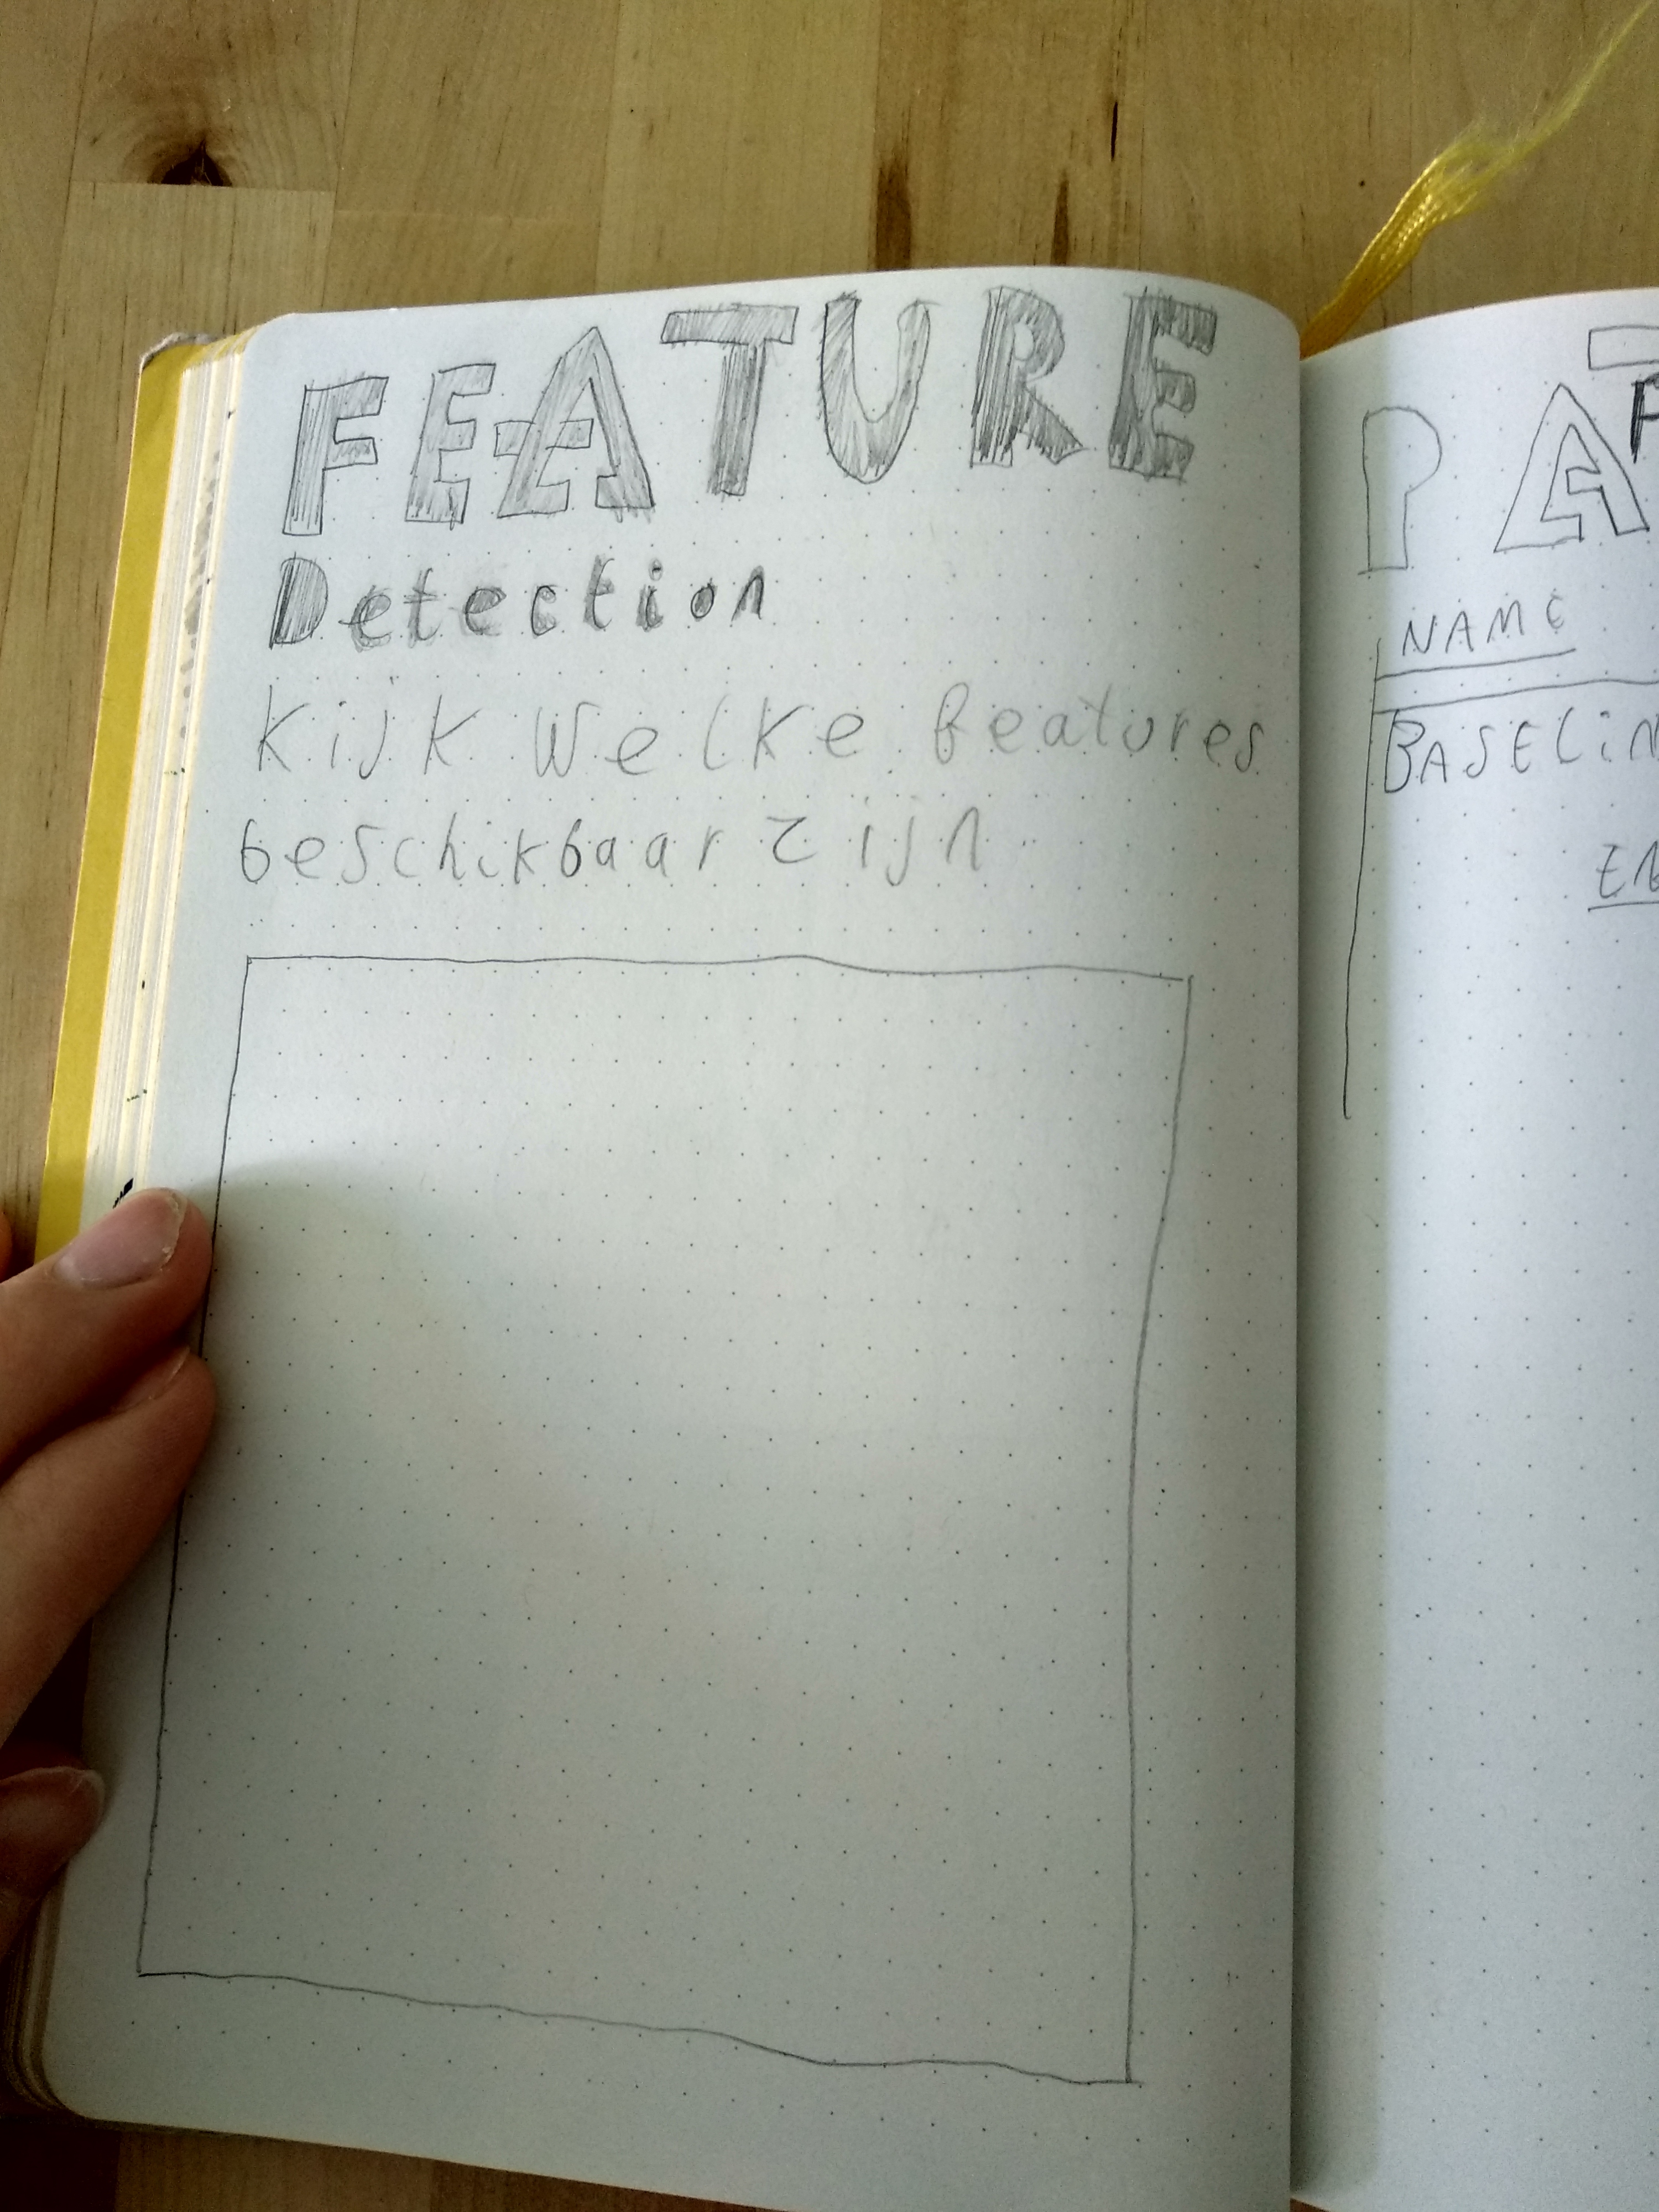 FEATURE
Detection
Kijk welke features
beschikbaar zijn
PAT
NAME
BASELIN
EN